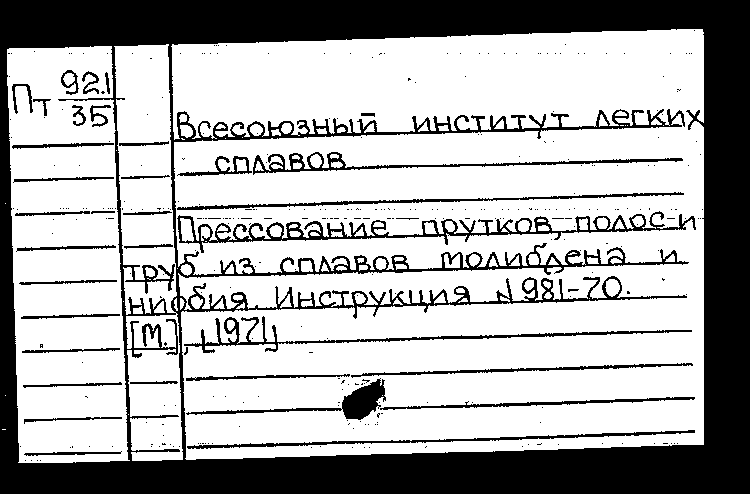 Пт 921
35
Всесоюзный институт легких
сплавов
Прессование прутков, полос и
труб из сплавов молибдена и
ниобия. Инструкция N 981-70.
[М.], [1971]